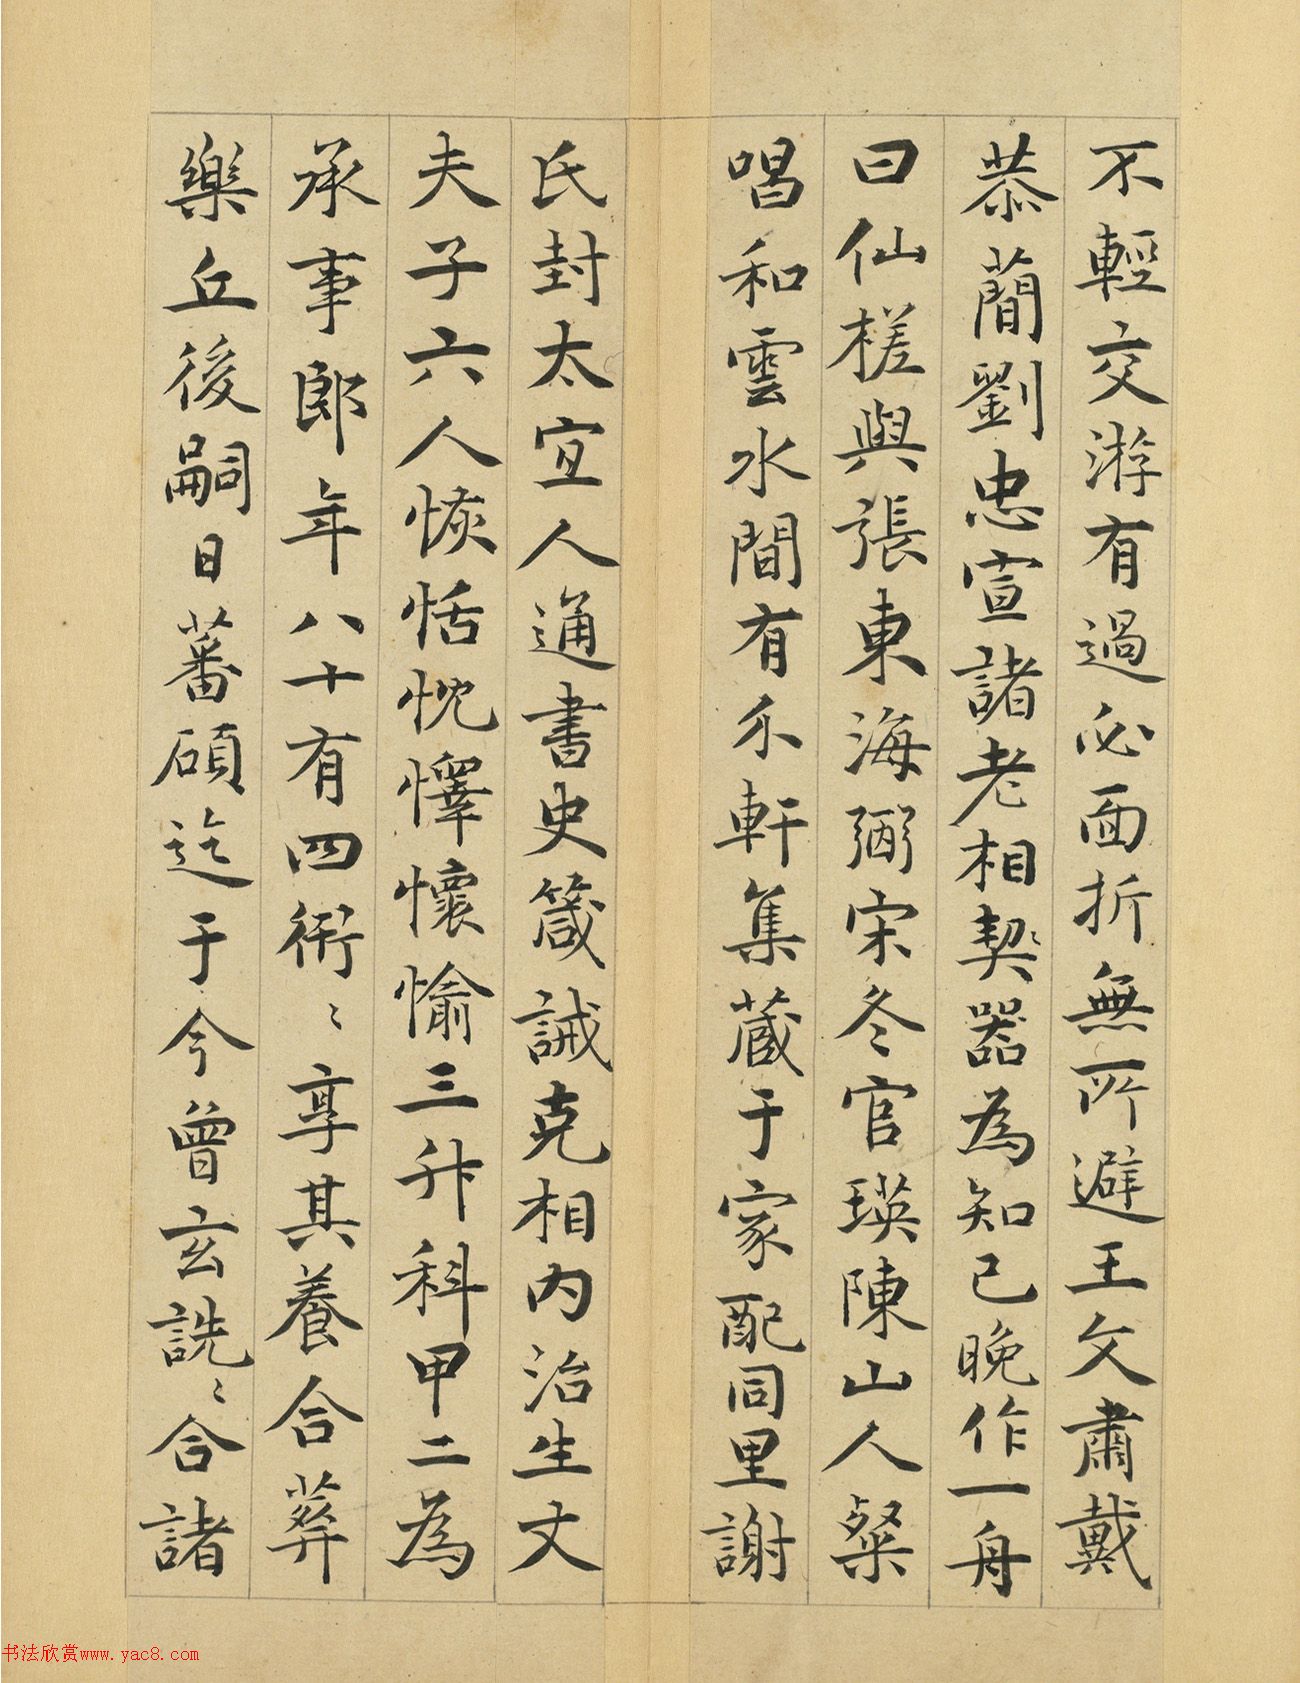 不輕交游有過必面折無所避王文肅戴
恭簡劉忠宣諸老相契器為知己晚作一舟
曰仙槎與張東海弼宋冬官瑛陳山人粲
唱和雲水間有尒軒集蔵于家配同里謝
氏封太宜人通書史箴誡克相内治生丈
夫子六人恢恬忱懌懷愉三升科甲二為
承事郎年八十有四衎〻享其養合葬
樂丘後嗣日蕃碩迄于今曾玄詵〻合諸
书法欣赏www.yac8.com